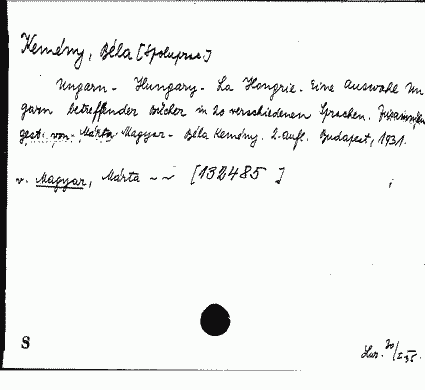 Kemény, Béla [Spoluprac.]
Ungarn - Hungary - La Hongrie. Eine Auswahl Un
garn betreffender Bücher in 20 verschiedenen Sprachen. Zusammen
gest. von Márta Magyar - Béla Kemény. 2. Aufl. Budapest, 1931.
v. Magyar, Márta ~ ~ [132485]
S